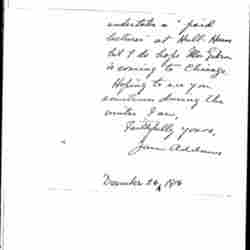 undertake a "paid
lecture" at Hull-House
but I do hope Mr.
is coming to Chicago.
Hoping to see you
sometime during the
winter I am,
Faithfully yours,
Jane Addams
December 26,